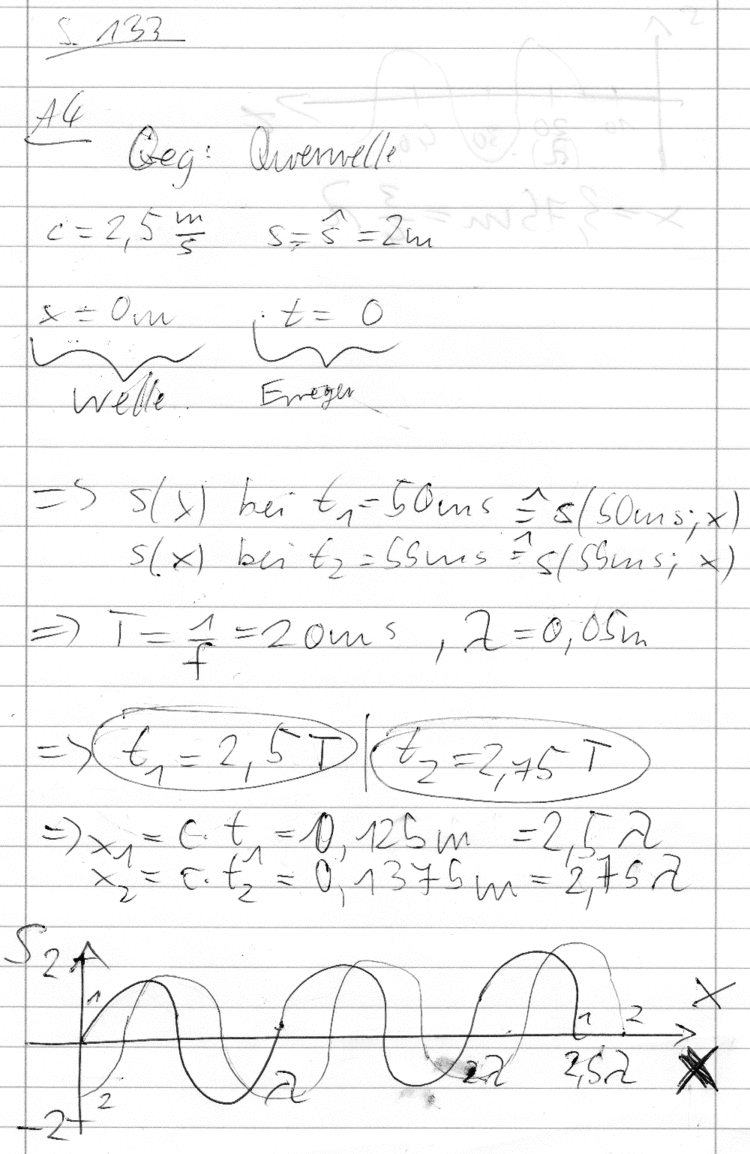 S. 133
A4
Geg: Querwelle
c = 2,5 m/s   s = ŝ = 2m
x = 0m   t = 0
Welle   Erreger
=> s(x) bei t₁ = 50ms ≙ s(50ms; x)
s(x) bei t₂ = 55ms ≙ s(55ms; x)
=> T = 1/f = 20ms , λ = 0,05m
=> t₁ = 2,5 T | t₂ = 2,75 T
=> x₁ = c · t₁ = 0,125m = 2,5 λ
x₂ = c · t₂ = 0,1375m = 2,75 λ
S 2
1
x
1 2
2 λ 2λ 2,5λ
-2